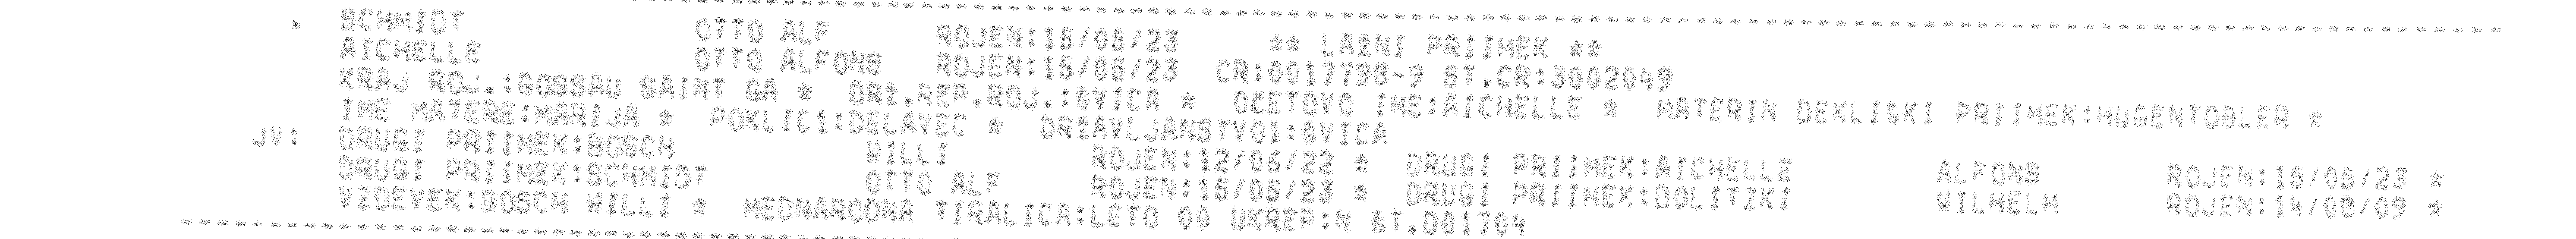 SCHMIDT OTTO ALF ROJEN:15/05/23 ** LAZNI PRIIMEK **
AICHELLE OTTO ALFONS ROJEN:15/05/23 CR:0017798-9 ST.CR:3002049
KRAJ ROJ.:GOSSAU SAINT GA * DRZ.REP.ROJ.:SVICA * OCETOVO IME:AICHELLE * MATERIN DEKLISKI PRIIMEK:HUGENTOBLER *
IME MATERE:MARIJA * POKLICI:DELAVEC * DRZAVLJANSTVO1:SVICA
JV: DRUGI PRIIMEK:BOSCH WILLI ROJEN:12/05/22 * DRUGI PRIIMEK:AICHELLE ALFONS ROJEN:15/05/23 *
DRUGI PRIIMEK:SCHMIDT OTTO ALF ROJEN:15/05/23 * DRUGI PRIIMEK:DOLITZKI WILHELM ROJEN:14/08/09 *
VZDEVEK:BOSCH WILLI * MEDNARODNA TIRALICA:LETO 09 UKREP:N ST.D01704